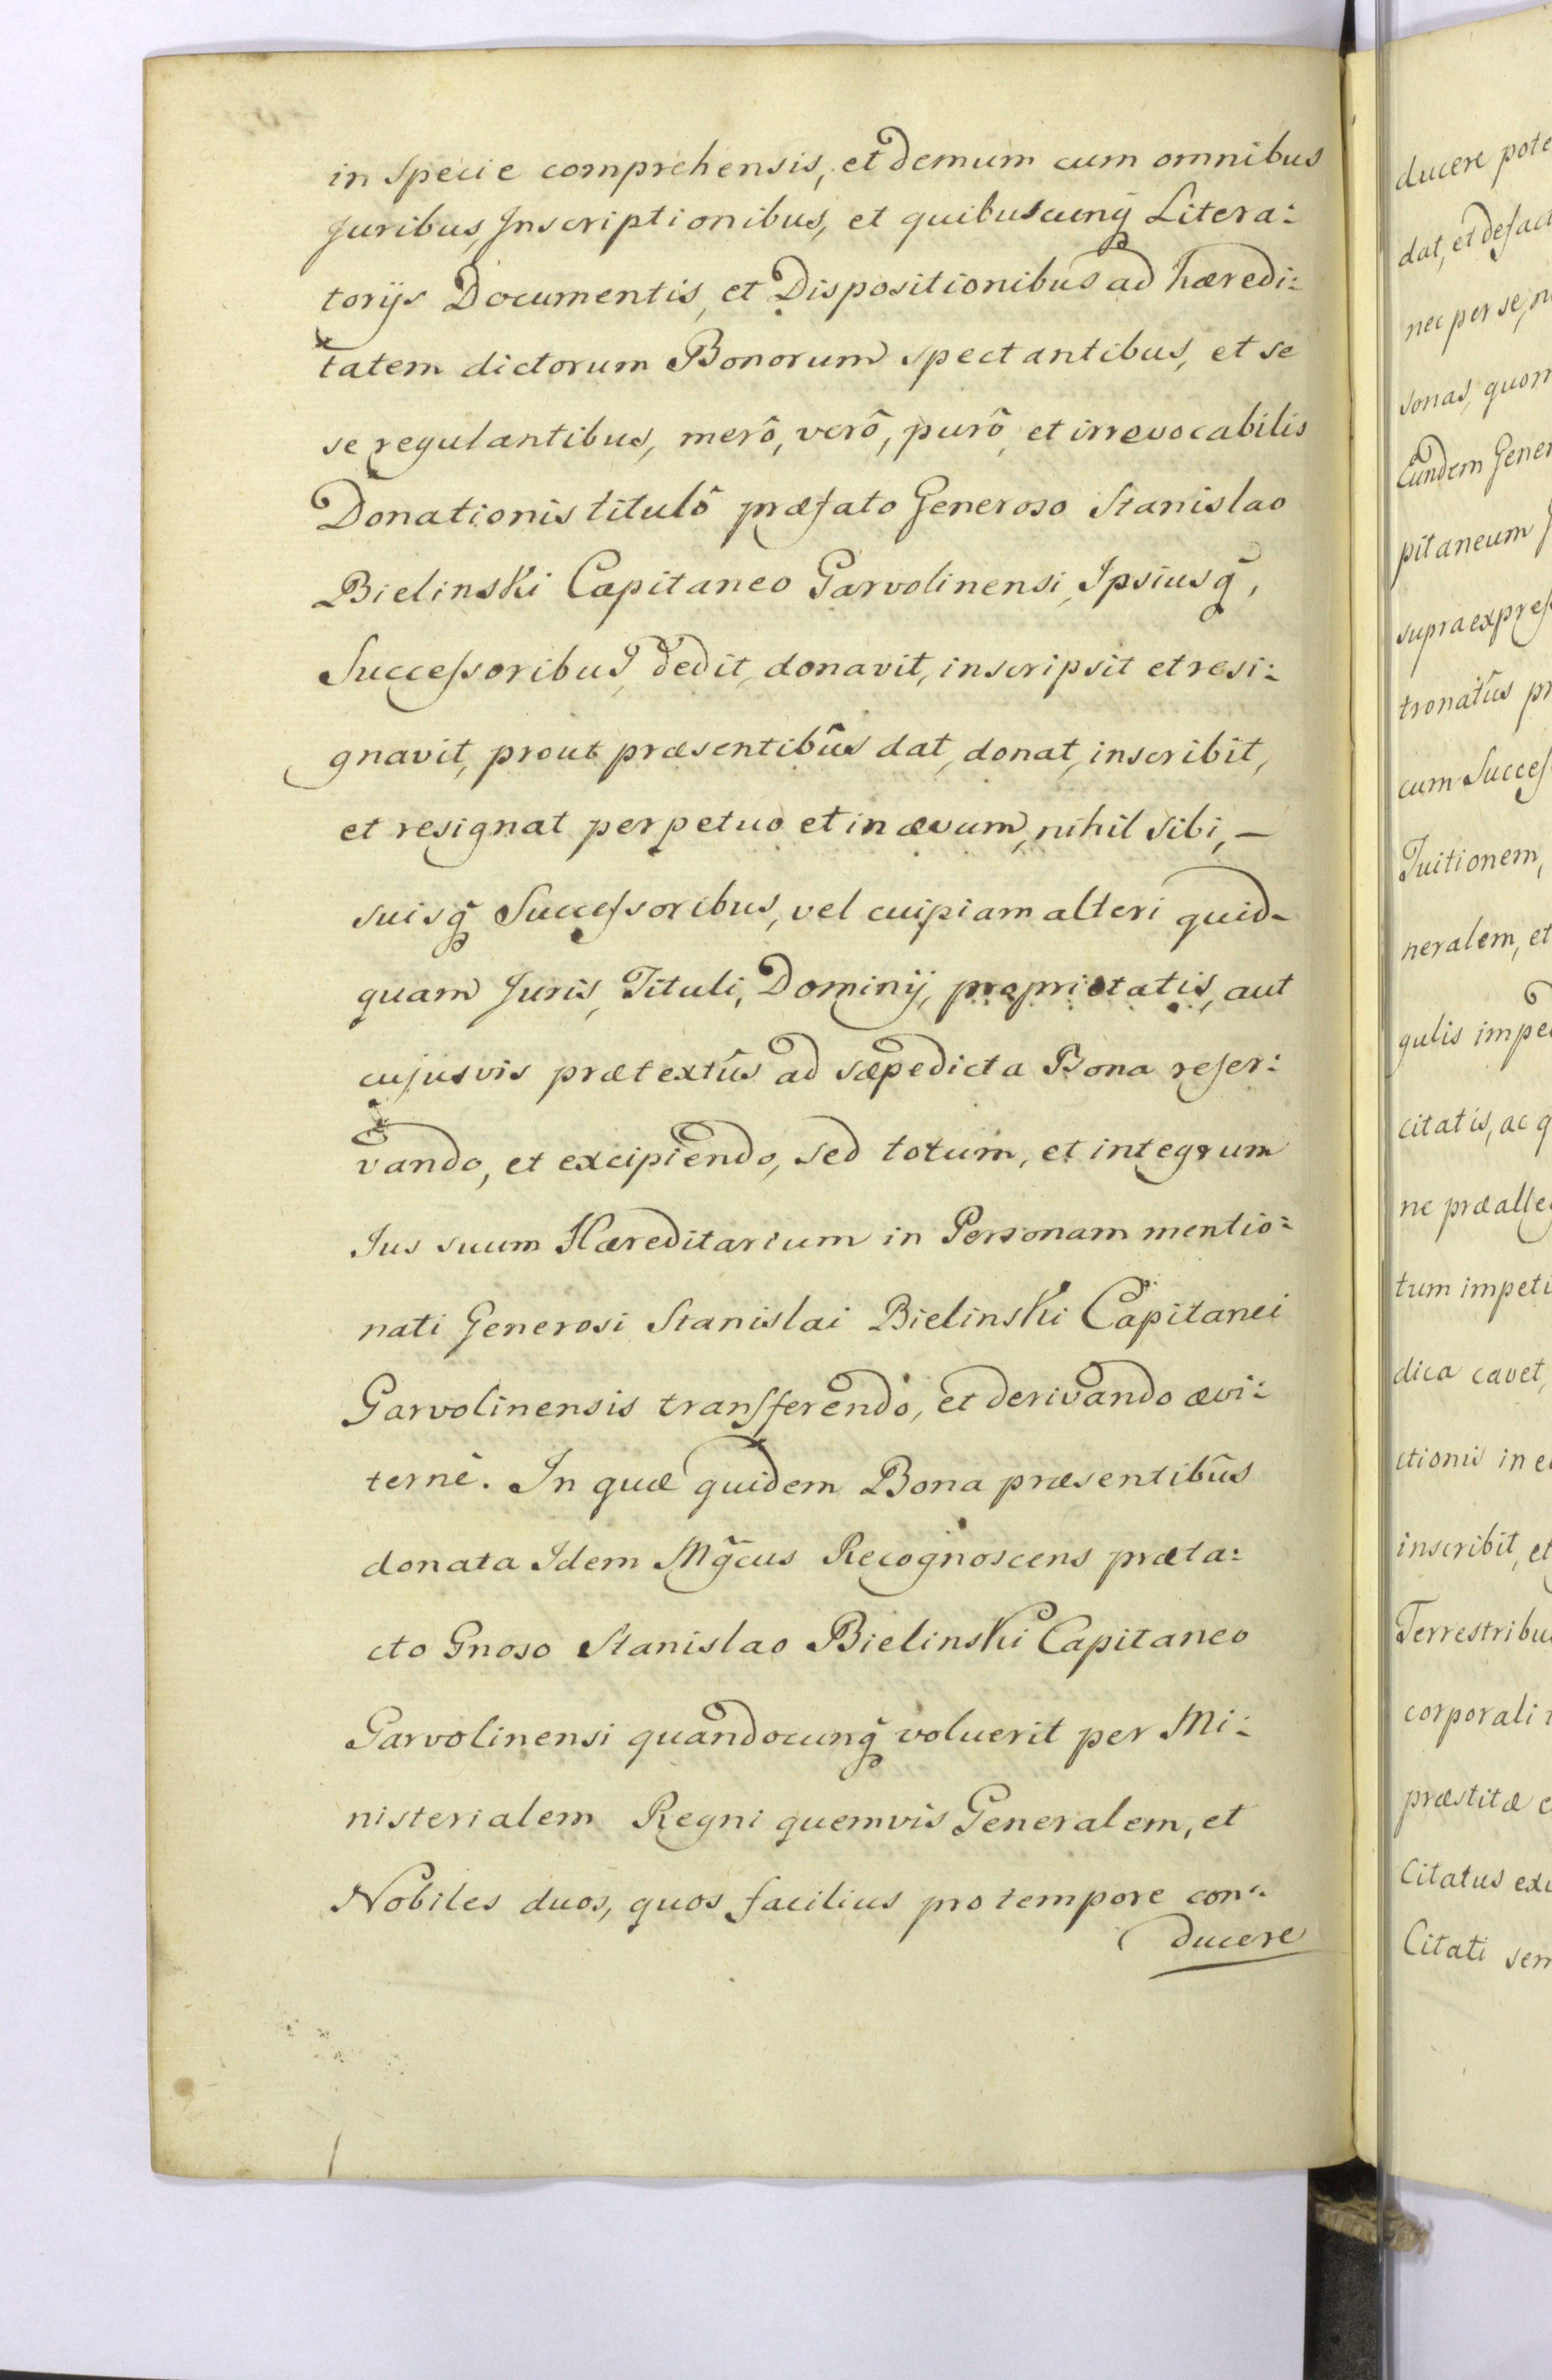 in Specie comprehensis, et demum cum omnibus
Juribus, Inscriptionibus, et quibuscunq̃ Litera:
torijs Documentis, et Dispositionibus ad hæredi:
tatem dictorum Bonorum spectantibus, et se
se regulantibus, merô, verô, purô, et irrevocabilis
Donationis titulô præfato Generoso Stanislao
Bielinski Capitaneo Garvolinensi, Ipsiusq̃,
Successoribus, dedit, donavit, inscripsit et resi:
gnavit, prout præsentibûs dat, donat, inscribit,
et resignat perpetuo et in ævum, nihil sibi, –
suisq̃ Successoribus, vel cuipiam alteri quid-
quam Juris, Tituli, Dominij, proprietatis, aut
cujusvis prætextûs ad sæpedicta Bona reser:
vando, et excipiendo, sed totum, et integrum
Jus suum Hæreditarium in Personam mentio:
nati Generosi Stanislai Bielinski Capitanei
Garvolinensis transferendo, et derivando ævi:
ternè. In quæ quidem Bona præsentibûs
donata Idem Mg̃cus Recognoscens præta:
cto Gnoso Stanislao Bielinski Capitaneo
Garvolinensi quandocunq̃ voluerit per Mi:
nisterialem Regni quemvis Generalem, et
Nobiles duos, quos facilius pro tempore con:
ducere
ducere pote
dat, et defact
nec per se, n
sonas, quom
Eundem Gener
pitaneum
supraexpress
tronatûs pr
cum Success
Tuitionem,
neralem, et
gulis impe
citatis, ac q
ne præalleg
tum impeti
dica cavet,
ctionis in e
inscribit, et
Terrestribus
corporali
præstitæ e
Citatus exi
Citati sem